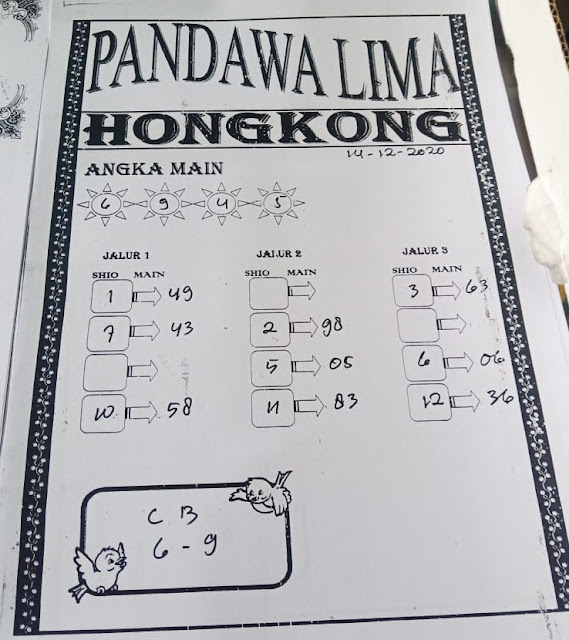 PANDAWA LIMA
HONGKONG
14-12-2020
ANGKA MAIN
6 9 4 5
JALUR 1
SHIO MAIN
1 49
7 43
10 58
JALUR 2
SHIO MAIN
2 98
5 05
11 83
JALUR 3
SHIO MAIN
3 63
6 06
12 36
CB
6 - 9